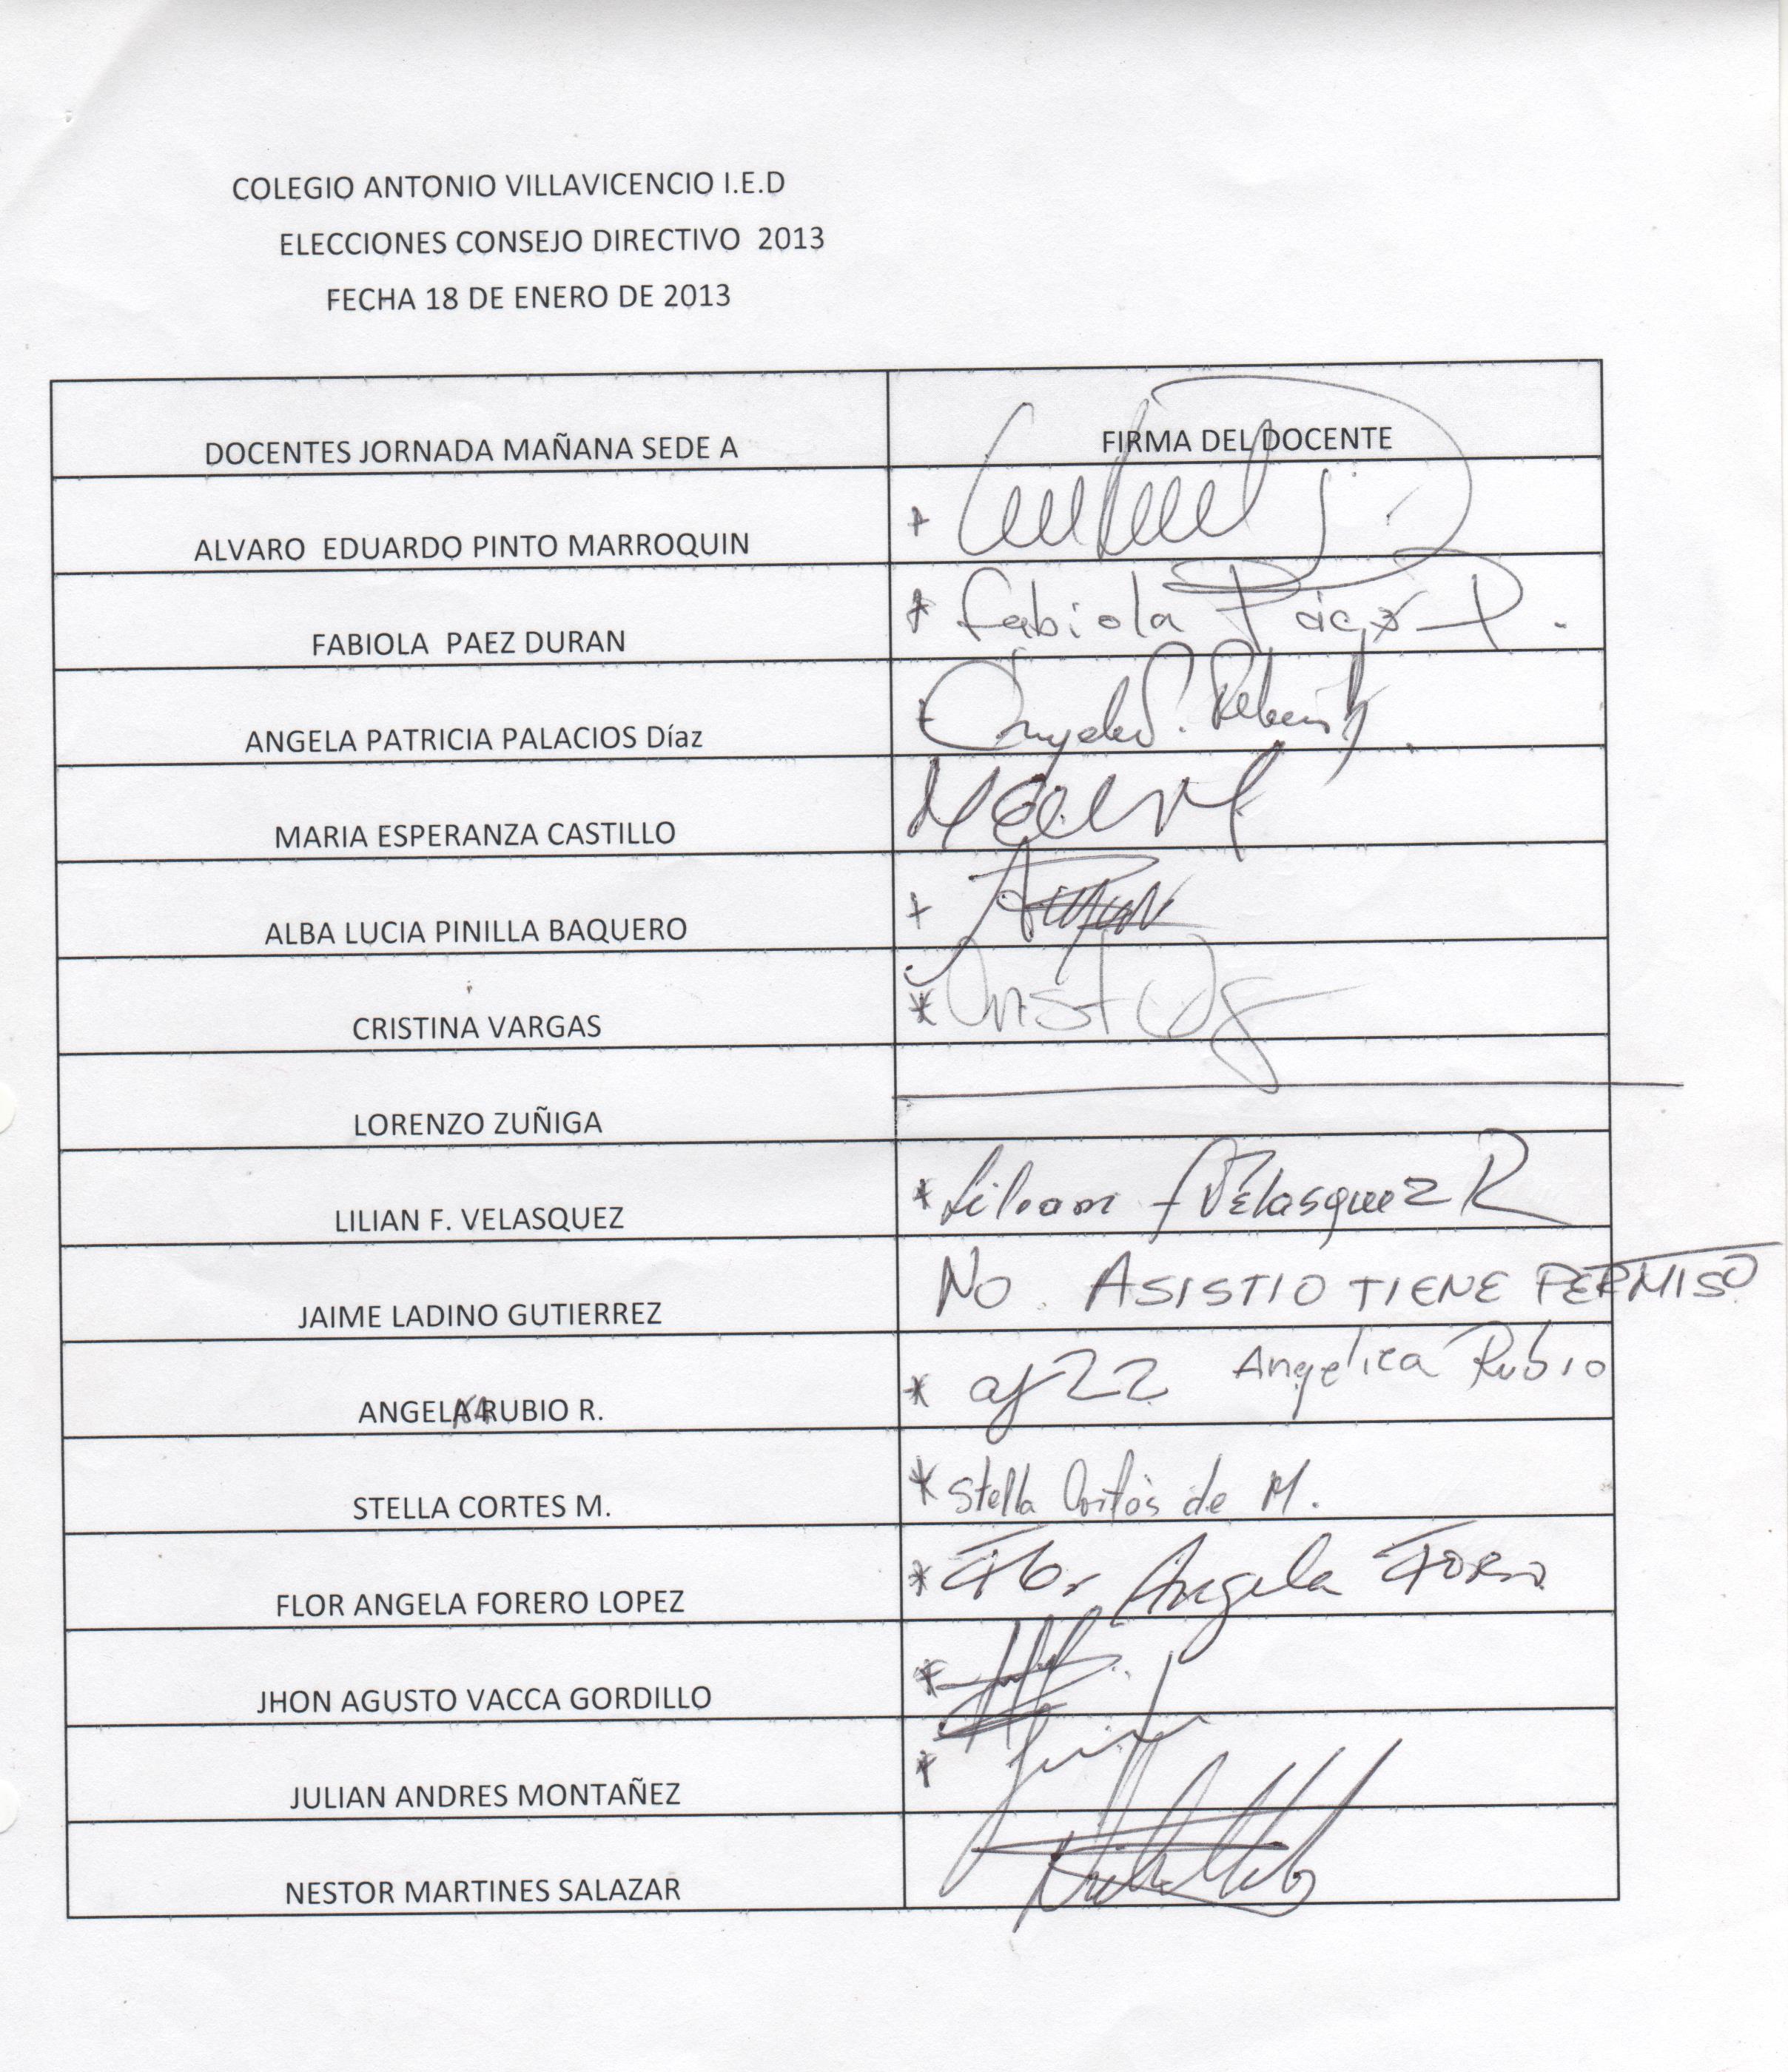 COLEGIO ANTONIO VILLAVICENCIO I.E.D
ELECCIONES CONSEJO DIRECTIVO 2013
FECHA 18 DE ENERO DE 2013
DOCENTES JORNADA MAÑANA SEDE A FIRMA DEL DOCENTE
ALVARO EDUARDO PINTO MARROQUIN +
FABIOLA PAEZ DURAN * Fabiola Páez D.
ANGELA PATRICIA PALACIOS Díaz +
MARIA ESPERANZA CASTILLO
ALBA LUCIA PINILLA BAQUERO +
CRISTINA VARGAS *
LORENZO ZUÑIGA
LILIAN F. VELASQUEZ * Lilian f Velasquez R
JAIME LADINO GUTIERREZ NO ASISTIO TIENE PERMISO
RUBIO R. * Angelica Rubio
STELLA CORTES M. * Stella Cortés de M.
FLOR ANGELA FORERO LOPEZ * Flor Angela Forero
JHON AGUSTO VACCA GORDILLO *
JULIAN ANDRES MONTAÑEZ *
NESTOR MARTINES SALAZAR